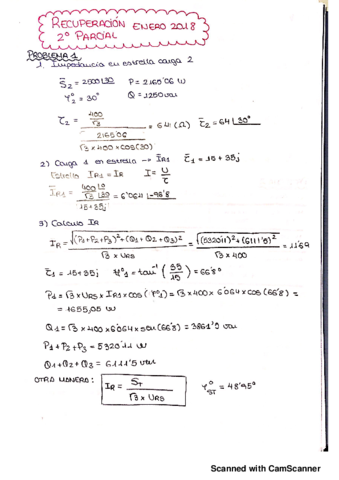 RECUPERACIÓN ENERO 2018
2º PARCIAL
PROBLEMA 1
1. Impedancia en estrella carga 2
S̄₂ = 2500 |30   P = 2165'06 W
φ₂° = 30°   Q = 1250 var
Z₂ = (400/√3) / (2165'06/(√3 × 400 × cos(30))) = 64 (Ω)   Z̄₂ = 64 |30°
2) Carga 1 en estrella → IR1   Z̄₁ = 15+35j
Estrella IR1 = IR   I = U/Z
ĪR1 = (400 |0 / √3 |30) / (15+35j) = 6'064 |-96'8
3) Calculo IR
IR = √((P₁+P₂+P₃)²+(Q₁+Q₂+Q₃)²) / (√3 × URS) = √((5320'11)²+(6111'5)²) / (√3 × 400) = 11'69
Z̄₁ = 15+35j   φ°₁ = tan⁻¹(35/15) = 66'8°
P₁ = √3 × URS × IR1 × cos(φ°₁) = √3 × 400 × 6'064 × cos(66'8) =
= 1655,05 W
Q₁ = √3 × 400 × 6'064 × sen(66'8) = 3861'5 var
P₁+P₂+P₃ = 5320'11 W
Q₁+Q₂+Q₃ = 6111'5 var
OTRA MANERA: IR = ST / (√3 × URS)   φ°ST = 48'95°
Scanned with CamScanner